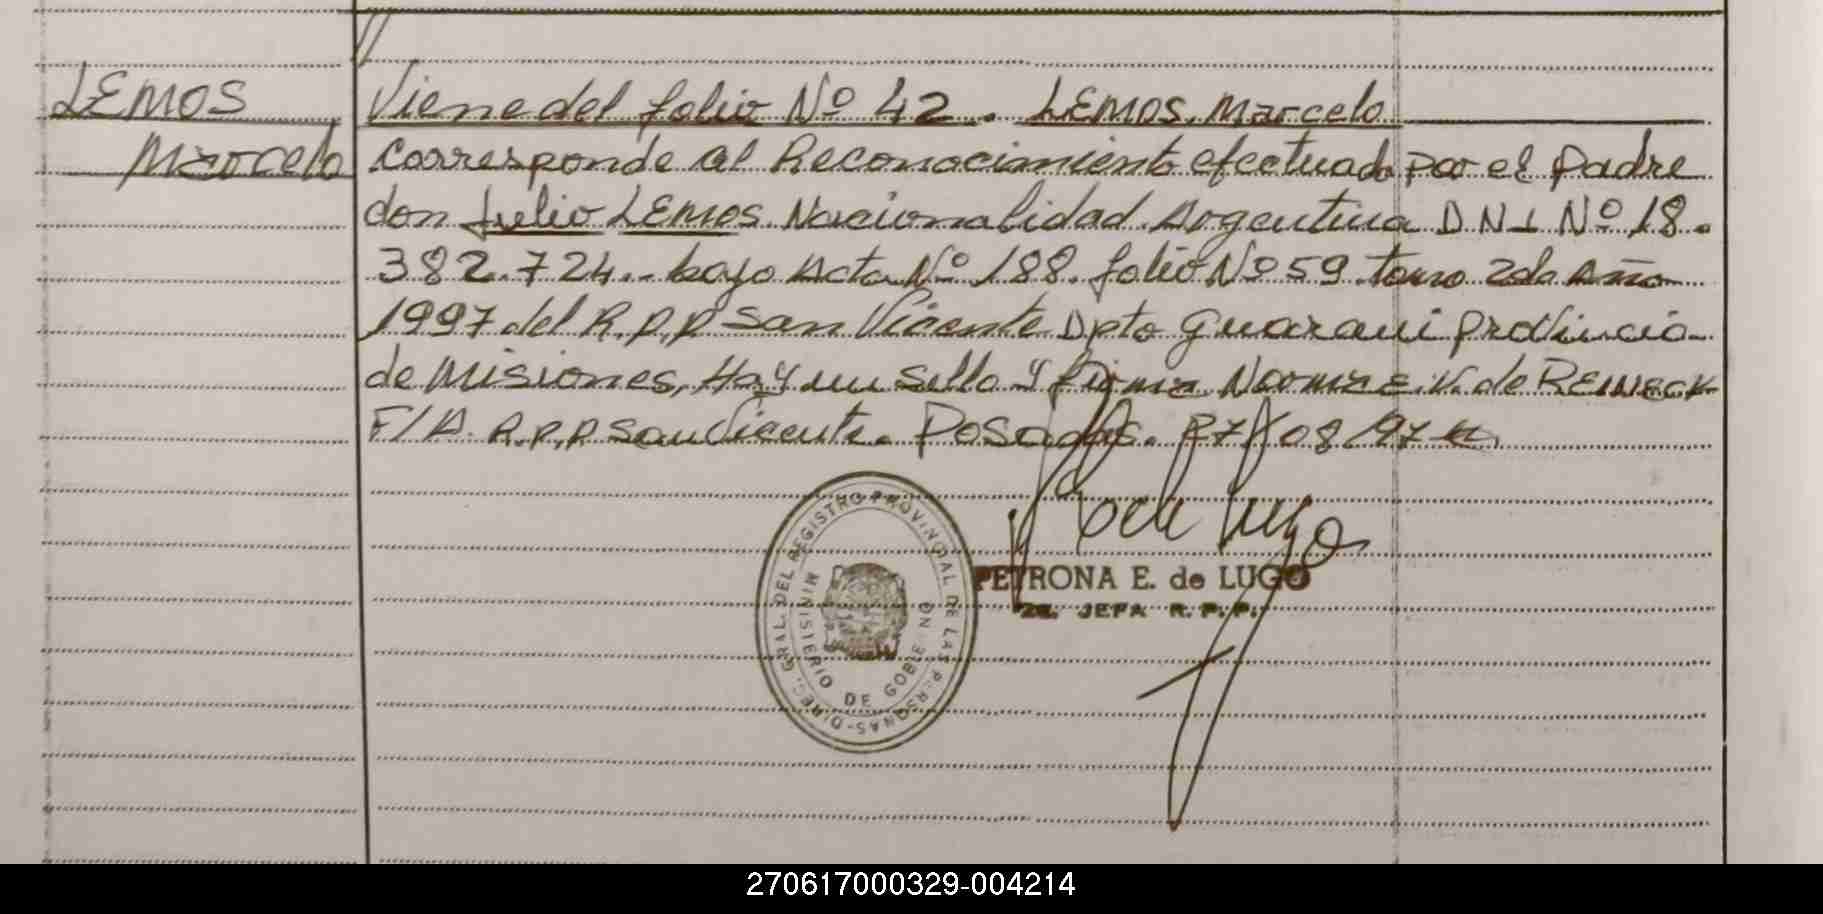 LEMOS
Marcelo
Viene del folio Nº 42. LEMOS, Marcelo
Corresponde al Reconocimiento efectuado por el padre
don Julio LEMOS. Nacionalidad Argentina DNI Nº 18.
382.724.- bajo Acta Nº 188. folio Nº 59 tomo 2do Año
1997 del R.P.P San Vicente Dpto Guarani Provincia
de Misiones, Hay un sello y firma Norma E. V. de REINECK
F/A. R.P.P San Vicente. Posadas. 27/08/97
DIREC. GRAL. DEL REGISTRO PROVINCIAL DE LAS PERSONAS-
MINISTERIO DE GOBIERNO
PETRONA E. de LUGO
2a. JEFA R.P.P.
270617000329-004214